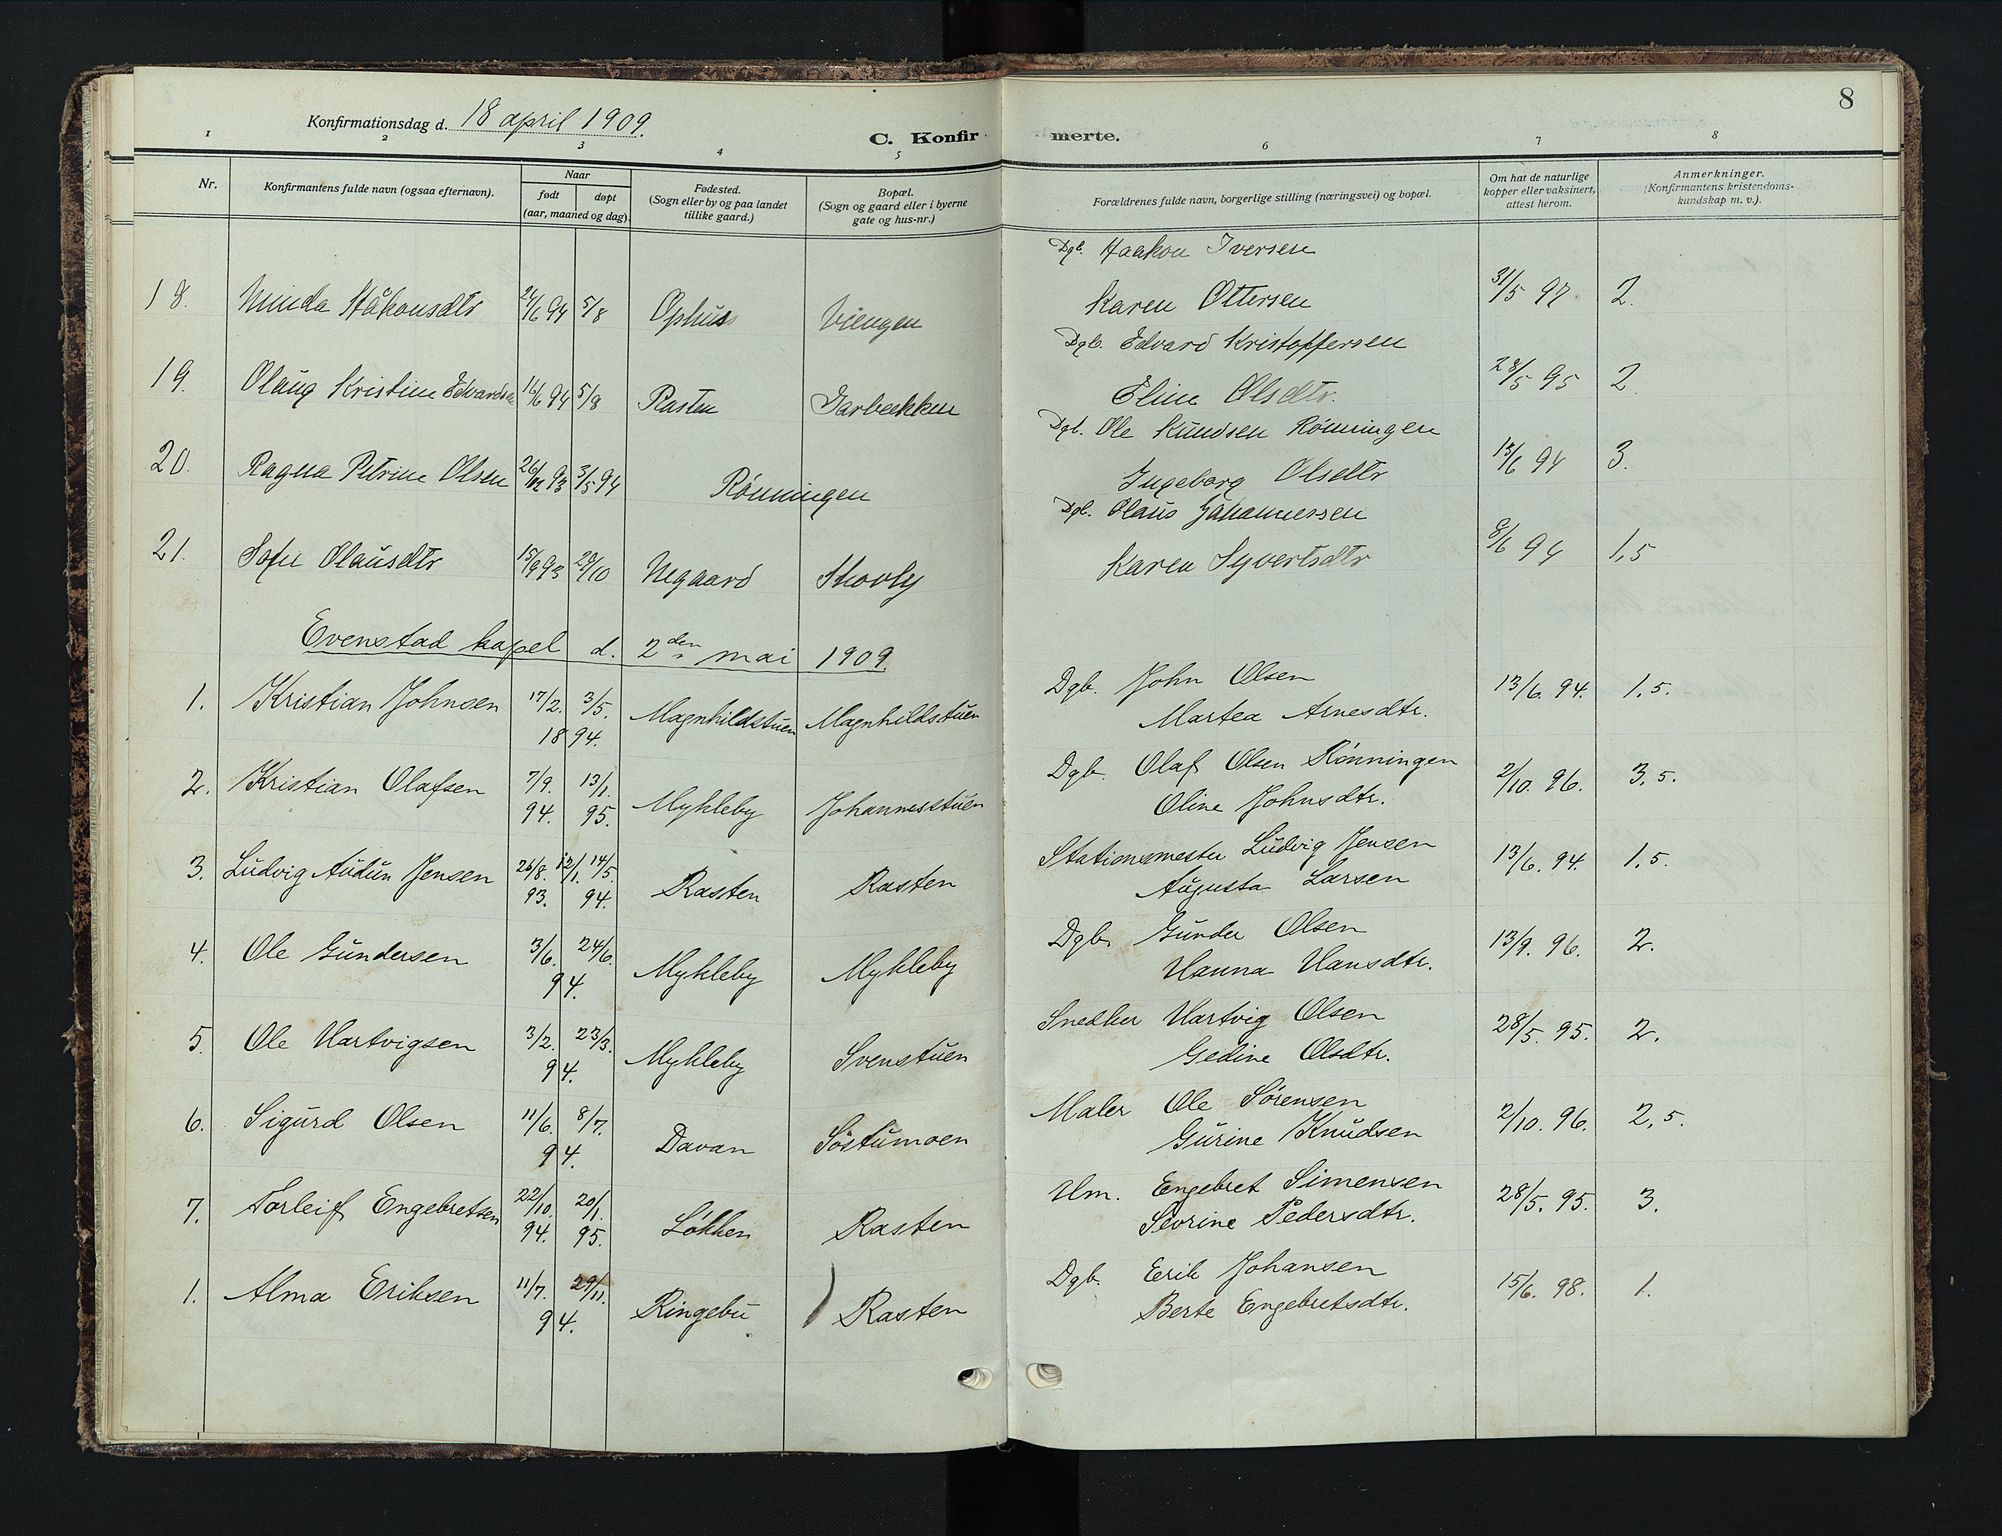 8
Konfirmationsdag d. 18 april 1909.
C. Konfirmerte.
1 2 3 4 5 6 7 8
Nr.
Konfirmantens fulde navn (ogsaa efternavn).
Naar
født døpt
(aar, maaned og dag).
Fødested.
(Sogn eller by og paa landet
tillike gaard.)
Bopæl.
(Sogn og gaard eller i byerne
gate og hus-nr.)
Forældrenes fulde navn, borgerlige stilling (næringsvei) og bopæl.
Om hat de naturlige
kopper eller vaksinert,
attest herom.
Anmerkninger.
(Konfirmantens kristendoms-
kundskap m. v.).
Dgb. Haakon Iversen
18. Minda Håkonsdtr 24/6 94 5/8 Ophus Viengen Karen Ottersen 31/5 97 2.
Dgb. Edvard Kristoffersen
19. Olaug Kristine Edvardsen 16/6 94 5/8 Rasten Garbekken Eline Olsdtr. 28/5 95 2
Dgb. Ole Kundsen Rønningen
20. Ragna Petrine Olsen 26/12 93 3/5 94 Rønningen Ingeborg Olsdtr 13/6 94 3.
Dgb. Olaus Johannessen
21. Sofie Olausdtr 15/9 93 29/10 Negaard Skovly Karen Syvertsdtr 8/6 94 1,5
Evenstad kapel d. 2den mai 1909.
1. Kristian Johnsen 17/2. 3/5. Magnhildstuen Magnhildsstuen Dgb. John Olsen 13/6. 94. 1,5.
18 94. Martea Arnesdtr.
2. Kristian Olafsen 7/9. 13/1. Mykleby Johannesstuen Dgb. Olaf Olsen Rønningen 2/10. 96. 3,5.
94. 95. Oline Johnsdtr.
3. Ludvig Audun Jensen 26/8. 12/1. 14/5. Rasten Rasten Stationsmester Ludvig Jensen 13/6. 94. 1,5.
93. 94. Augusta Larsen
4. Ole Gundersen 3/6. 24/6. Mykleby Mykleby Dgb. Gunder Olsen 13/9. 96. 2.
94. Hanna Hansdtr.
5. Ole Hartvigsen 3/2. 23/3. Mykleby Svenstuen Snedker Hartvig Olsen 28/5. 95. 2.
94. Gedine Olsdtr.
6. Sigurd Olsen 11/6. 8/7. Davan Søstumoen Maler Ole Sørensen 2/10. 96. 2,5.
94. Gurine Knudsen
7. Torleif Engebretsen 22/10. 20/1. Løkken Rasten Hm. Engebret Simensen 28/5. 95. 3.
94. 95. Sevrine Pedersdtr.
1. Alma Eriksen 11/7. 29/11. Ringebu Rasten Dgb. Erik Johansen 15/6. 98. 1.
94. Berte Engebretsdtr.